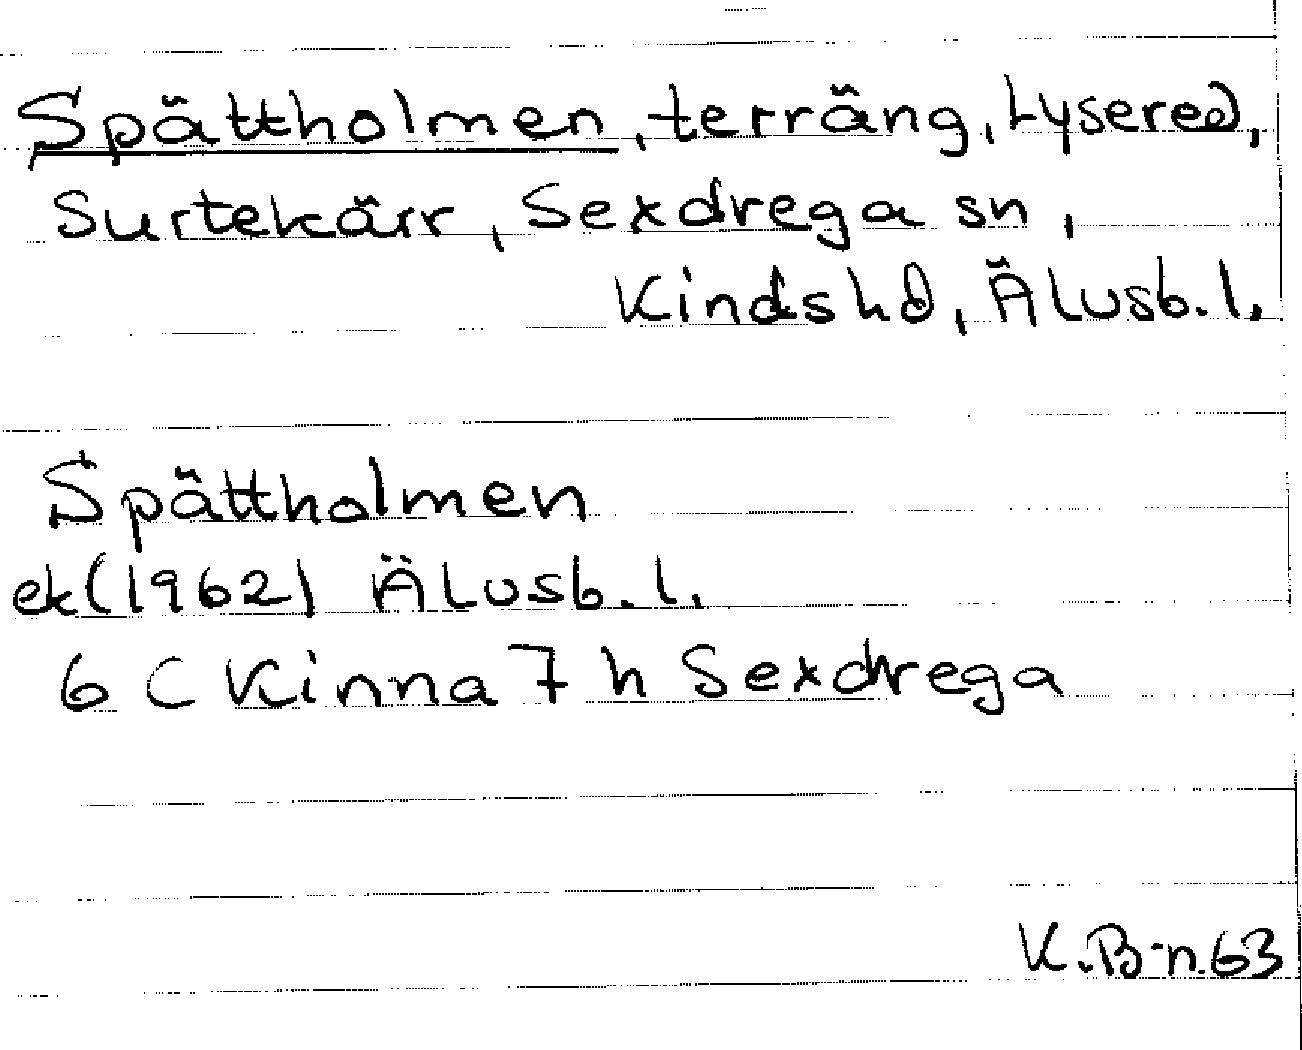 Spättholmen, terräng, Lysered,
Surtekärr, Sexdrega sn,
Kinds hd, Älvsb. l.
Spättholmen
ek (1962) Älvsb. l.
6 C Kinna 7 h Sexdrega
K.B-n.63